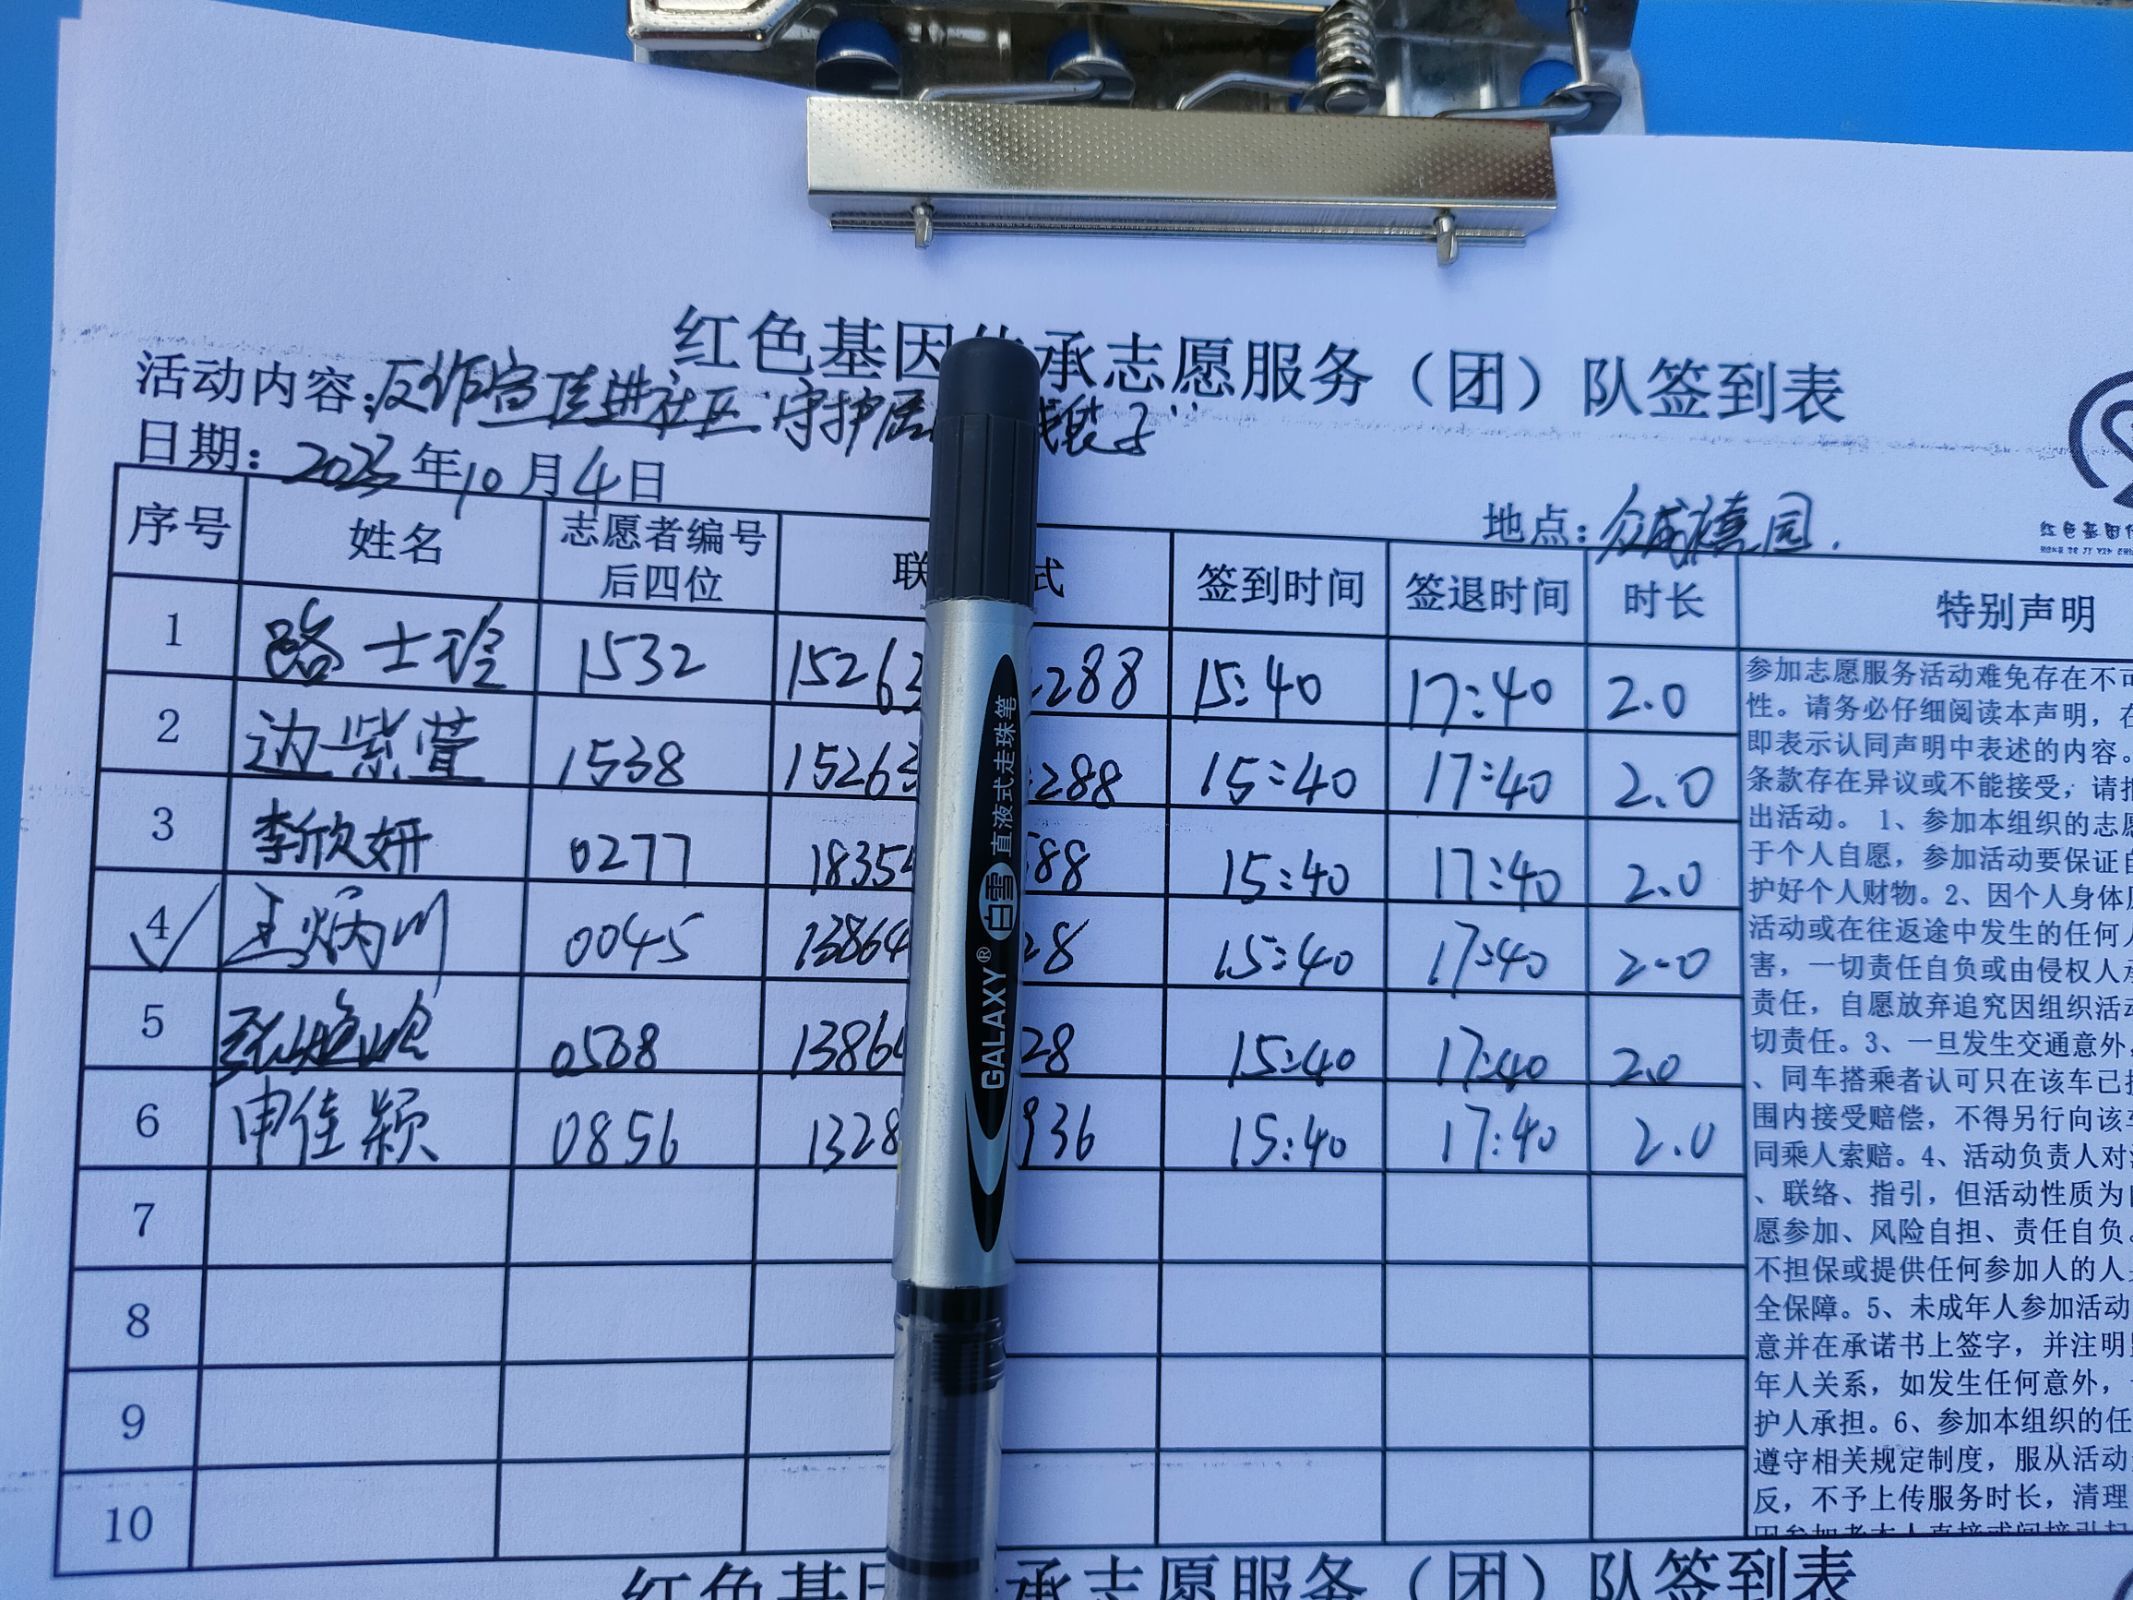 红色基因传承志愿服务（团）队签到表
活动内容：反诈宣传进社区 守护居 钱袋子"
日期：2023年10月4日
地点：众成禧园.
序号 姓名 志愿者编号后四位 联 式 签到时间 签退时间 时长 特别声明
1 路士玲 1532 15263 288 15:40 17:40 2.0
2 边紫萱 1538 15263 288 15:40 17:40 2.0
3 李欣妍 0277 1835 88 15:40 17:40 2.0
4 王炳川 0045 13864 28 15:40 17:40 2.0
5 0538 1386 28 15:40 17:40 2.0
6 申佳颖 0856 1328 936 15:40 17:40 2.0
7
8
9
10
参加志愿服务活动难免存在不可
性。请务必仔细阅读本声明，在
即表示认同声明中表述的内容。
条款存在异议或不能接受，请
出活动。 1、参加本组织的志愿
于个人自愿，参加活动要保证自
护好个人财物。2、因个人身体
活动或在往返途中发生的任何人
害，一切责任自负或由侵权人承
责任，自愿放弃追究因组织活动
切责任。3、一旦发生交通意外，
、同车搭乘者认可只在该车已
围内接受赔偿，不得另行向该车
同乘人索赔。4、活动负责人对
、联络、指引，但活动性质为自
愿参加、风险自担、责任自负。
不担保或提供任何参加人的人
全保障。5、未成年人参加活动
意并在承诺书上签字，并注明
年人关系，如发生任何意外，
护人承担。6、参加本组织的任
遵守相关规定制度，服从活动
反，不予上传服务时长，清理
因参加者本人直接或间接引起
红色基因
GALAXY® 白雪 直液式走珠笔
红色基因 承志愿服务（团）队签到表